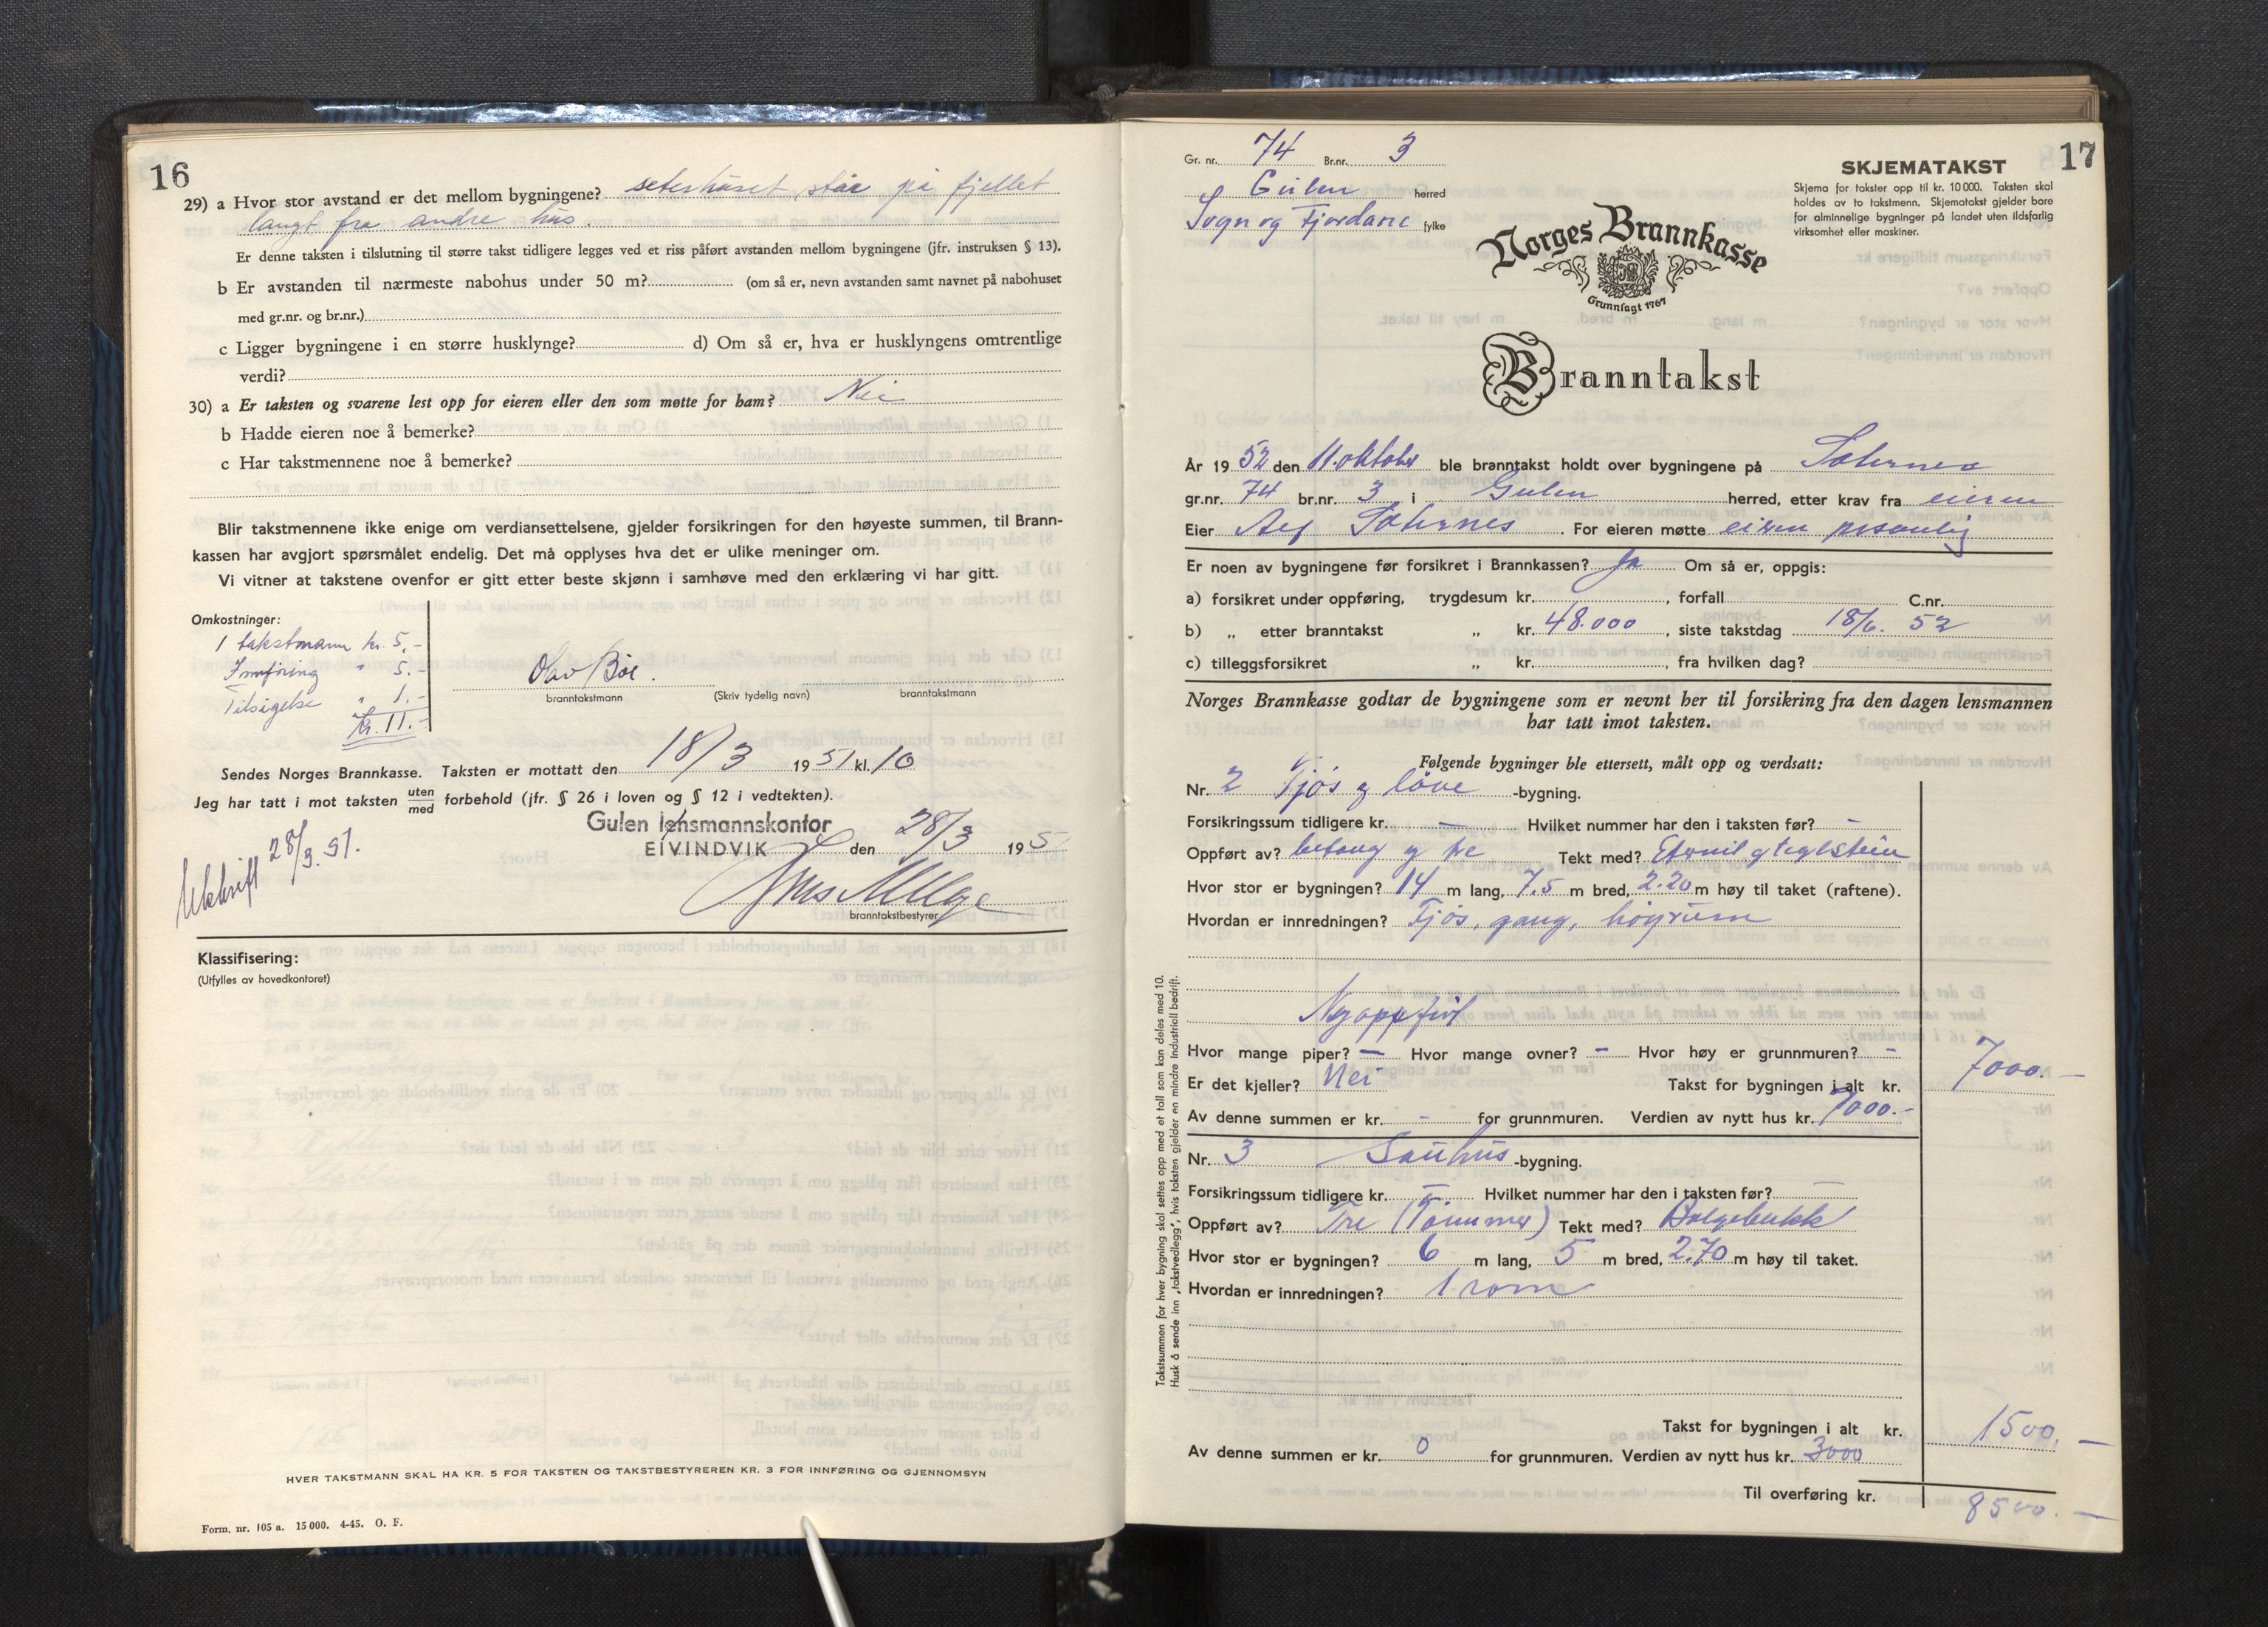 16
29) a Hvor stor avstand er det mellom bygningene? seterhuset står på fjellet
langt fra andre hus.
Er denne taksten i tilslutning til større takst tidligere legges ved et riss påført avstanden mellom bygningene (jfr. instruksen § 13).
b Er avstanden til nærmeste nabohus under 50 m? (om så er, nevn avstanden samt navnet på nabohuset
med gr.nr. og br.nr.)
c Ligger bygningene i en større husklynge? d) Om så er, hva er husklyngens omtrentlige
verdi?
30) a Er taksten og svarene lest opp for eieren eller den som møtte for ham? Nei
b Hadde eieren noe å bemerke?
c Har takstmennene noe å bemerke?
Blir takstmennene ikke enige om verdiansettelsene, gjelder forsikringen for den høyeste summen, til Brann-
kassen har avgjort spørsmålet endelig. Det må opplyses hva det er ulike meninger om.
Vi vitner at takstene ovenfor er gitt etter beste skjønn i samhøve med den erklæring vi har gitt.
Omkostninger:
1 takstmann kr. 5.-
Innføring " 5.-
Tilsigelse " 1.-
kr. 11.-
Olav Bøe.
branntakstmann (Skriv tydelig navn) branntakstmann
Sendes Norges Brannkasse. Taksten er mottatt den 18/3 1951 kl. 10
Jeg har tatt i mot taksten uten/med forbehold (jfr. § 26 i loven og § 12 i vedtekten).
Utskrift 28/3.51.
Gulen lensmannskontor
EIVINDVIK den 28/3 195
branntakstbestyrer
Klassifisering:
(Utfylles av hovedkontoret)
HVER TAKSTMANN SKAL HA KR. 5 FOR TAKSTEN OG TAKSTBESTYREREN KR. 3 FOR INNFØRING OG GJENNOMSYN
Form. nr. 105 a. 15 000. 4-45. O. F.
17
Gr. nr. 74 Br.nr. 3
Gulen herred
Sogn og Fjordane fylke
SKJEMATAKST
Skjema for takster opp til kr. 10 000. Taksten skal
holdes av to takstmenn. Skjematakst gjelder bare
for alminnelige bygninger på landet uten ildsfarlig
virksomhet eller maskiner.
Norges Brannkasse
Grunnlagt 1767
Branntakst
År 1952 den 11. oktober ble branntakst holdt over bygningene på Sæternes
gr.nr. 74 br.nr. 3 i Gulen herred, etter krav fra eieren
Eier Alf Sæternes. For eieren møtte eieren personlig
Er noen av bygningene før forsikret i Brannkassen? Ja Om så er, oppgis:
a) forsikret under oppføring, trygdesum kr. , forfall C.nr.
b) „ etter branntakst „ kr. 48.000 , siste takstdag 18/6. 52
c) tilleggsforsikret „ kr. , fra hvilken dag?
Norges Brannkasse godtar de bygningene som er nevnt her til forsikring fra den dagen lensmannen
har tatt imot taksten.
Følgende bygninger ble ettersett, målt opp og verdsatt:
Nr. 2 Fjøs og løve -bygning.
Forsikringssum tidligere kr. — Hvilket nummer har den i taksten før? -
Oppført av? betong og tre Tekt med? Eternit og teglstein
Hvor stor er bygningen? 14 m lang, 7.5 m bred, 2.20 m høy til taket (raftene).
Hvordan er innredningen? Fjøs, gang, høyrum
Nyoppført
Hvor mange piper? — Hvor mange ovner? - Hvor høy er grunnmuren? -
Er det kjeller? Nei Takst for bygningen i alt kr. 7000.-
Av denne summen er kr. - for grunnmuren. Verdien av nytt hus kr. 7000.-
Nr. 3 Sauhus -bygning.
Forsikringssum tidligere kr. — Hvilket nummer har den i taksten før? —
Oppført av? Tre (Tømmer) Tekt med? Bølgeblikk
Hvor stor er bygningen? 6 m lang, 5 m bred, 2.70 m høy til taket.
Hvordan er innredningen? 1 rom
Takst for bygningen i alt kr. 1500.-
Av denne summen er kr. 0 for grunnmuren. Verdien av nytt hus kr. 3000
Til overføring kr. 8500.-
Takstsummen for hver bygning skal settes opp med et tall som kan deles med 10.
Husk å sende inn „takstvedlegg", hvis taksten gjelder en mindre industriell bedrift.